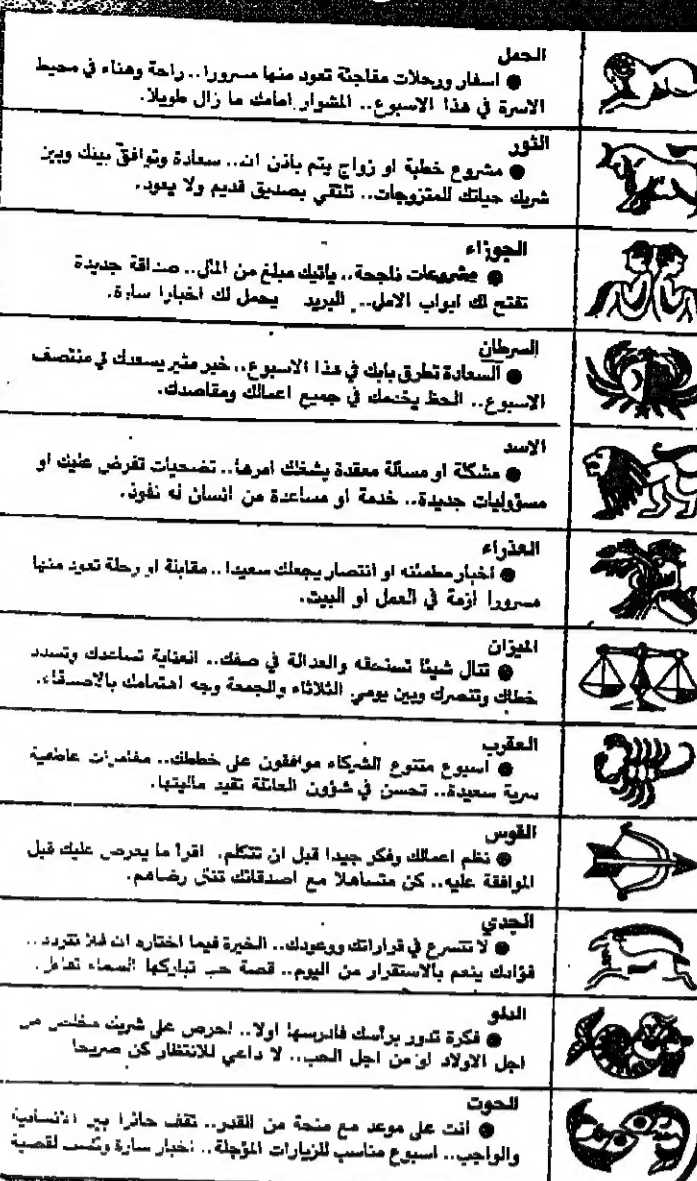 الحمل
● اسفار ورحلات مفاجئة تعود منها مسرورا.. راحة وهناء في محيط
الاسرة في هذا الاسبوع.. المشوار امامك ما زال طويلا.
الثور
● مشروع خطبة او زواج يتم باذن الله.. سعادة وتوافق بينك وبين
شريك حياتك للمتزوجات.. تلتقي بصديق قديم ولا يعود.
الجوزاء
● مشروعات ناجحة.. ياتيك مبلغ من المال.. صداقة جديدة
تفتح لك ابواب الامل.. البريد يحمل لك اخبارا سارة.
السرطان
● السعادة تطرق بابك في هذا الاسبوع.. خبر مثير يسعدك في منتصف
الاسبوع.. الحظ يخدمك في جميع اعمالك ومقاصدك.
الاسد
● مشكلة او مسالة معقدة يشغلك امرها.. تضحيات تفرض عليك او
مسؤوليات جديدة.. خدمة او مساعدة من انسان له نفوذ.
العذراء
● اخبار مطمئنه او انتصار يجعلك سعيدا.. مقابلة او رحلة تعود منها
مسرورا ازمة في العمل او البيت.
الميزان
● تنال شيئا تستحقه والعدالة في صفك.. العناية تساعدك وتسدد
خطاك وتنصرك وبين يومي الثلاثاء والجمعة وجه اهتمامك بالاصدقاء.
العقرب
● اسبوع متنوع الشركاء موافقون على خططك.. مغامرات عاطفية
سرية سعيدة.. تحسن في شؤون العائلة تفيد ماليتها.
القوس
● نظم اعمالك وفكر جيدا قبل ان تتكلم. اقرأ ما يعرض عليك قبل
الموافقة عليه.. كن متساهلا مع اصدقائك تنل رضاهم.
الجدي
● لا تتسرع في قراراتك ووعودك.. الخيرة فيما اختاره الله فلا تتردد..
فؤادك ينعم بالاستقرار من اليوم.. قصة حب تباركها السماء تفاءل.
الدلو
● فكرة تدور برأسك فادرسها اولا.. احرص على شريك مخلص من
اجل الاولاد او من اجل الحب.. لا داعي للانتظار كن صريحا
الحوت
● انت على موعد مع منحة من القدر.. تقف حائرا بين الانسانية
والواجب.. اسبوع مناسب للزيارات المؤجلة.. اخبار سارة وكسب لقضية